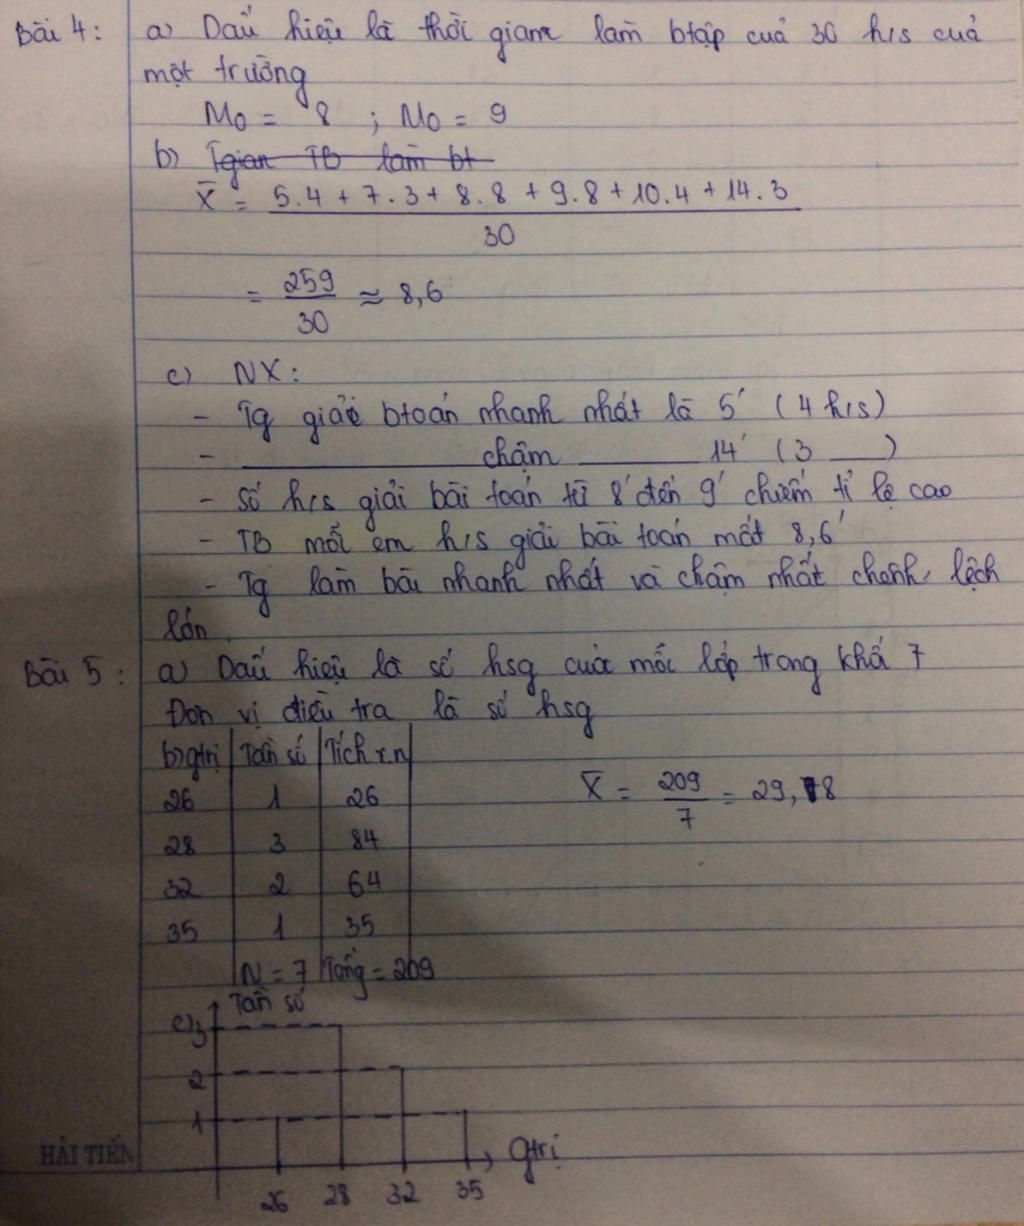 Bài 4: a) Dấu hiệu là thời gian làm btập của 30 h/s của
một trường
M₀ = 8 ; M₀ = 9
b) Tgian TB làm bt
X̄ = 5.4 + 7.3 + 8.8 + 9.8 + 10.4 + 14.3
30
= 259/30 ≈ 8,6
c) NX:
- Tg giải btoán nhanh nhất là 5' (4 h/s)
- ______ chậm ______ 14' (3 __)
- Số h/s giải bài toán từ 8' đến 9' chiếm tỉ lệ cao
- TB mỗi em h/s giải bài toán mất 8,6'
- Tg làm bài nhanh nhất và chậm nhất chênh lệch
lớn.
Bài 5: a) Dấu hiệu là số hsg của mỗi lớp trong khối 7
Đơn vị điều tra là số hsg
b) gtrị Tần số Tích x.n
26 1 26 X̄ = 209/7 = 29,8
28 3 84
32 2 64
35 1 35
N = 7 Tổng = 209
Tần số
c) 3
2
1
HẢI TIẾN
gtrị
26 28 32 35